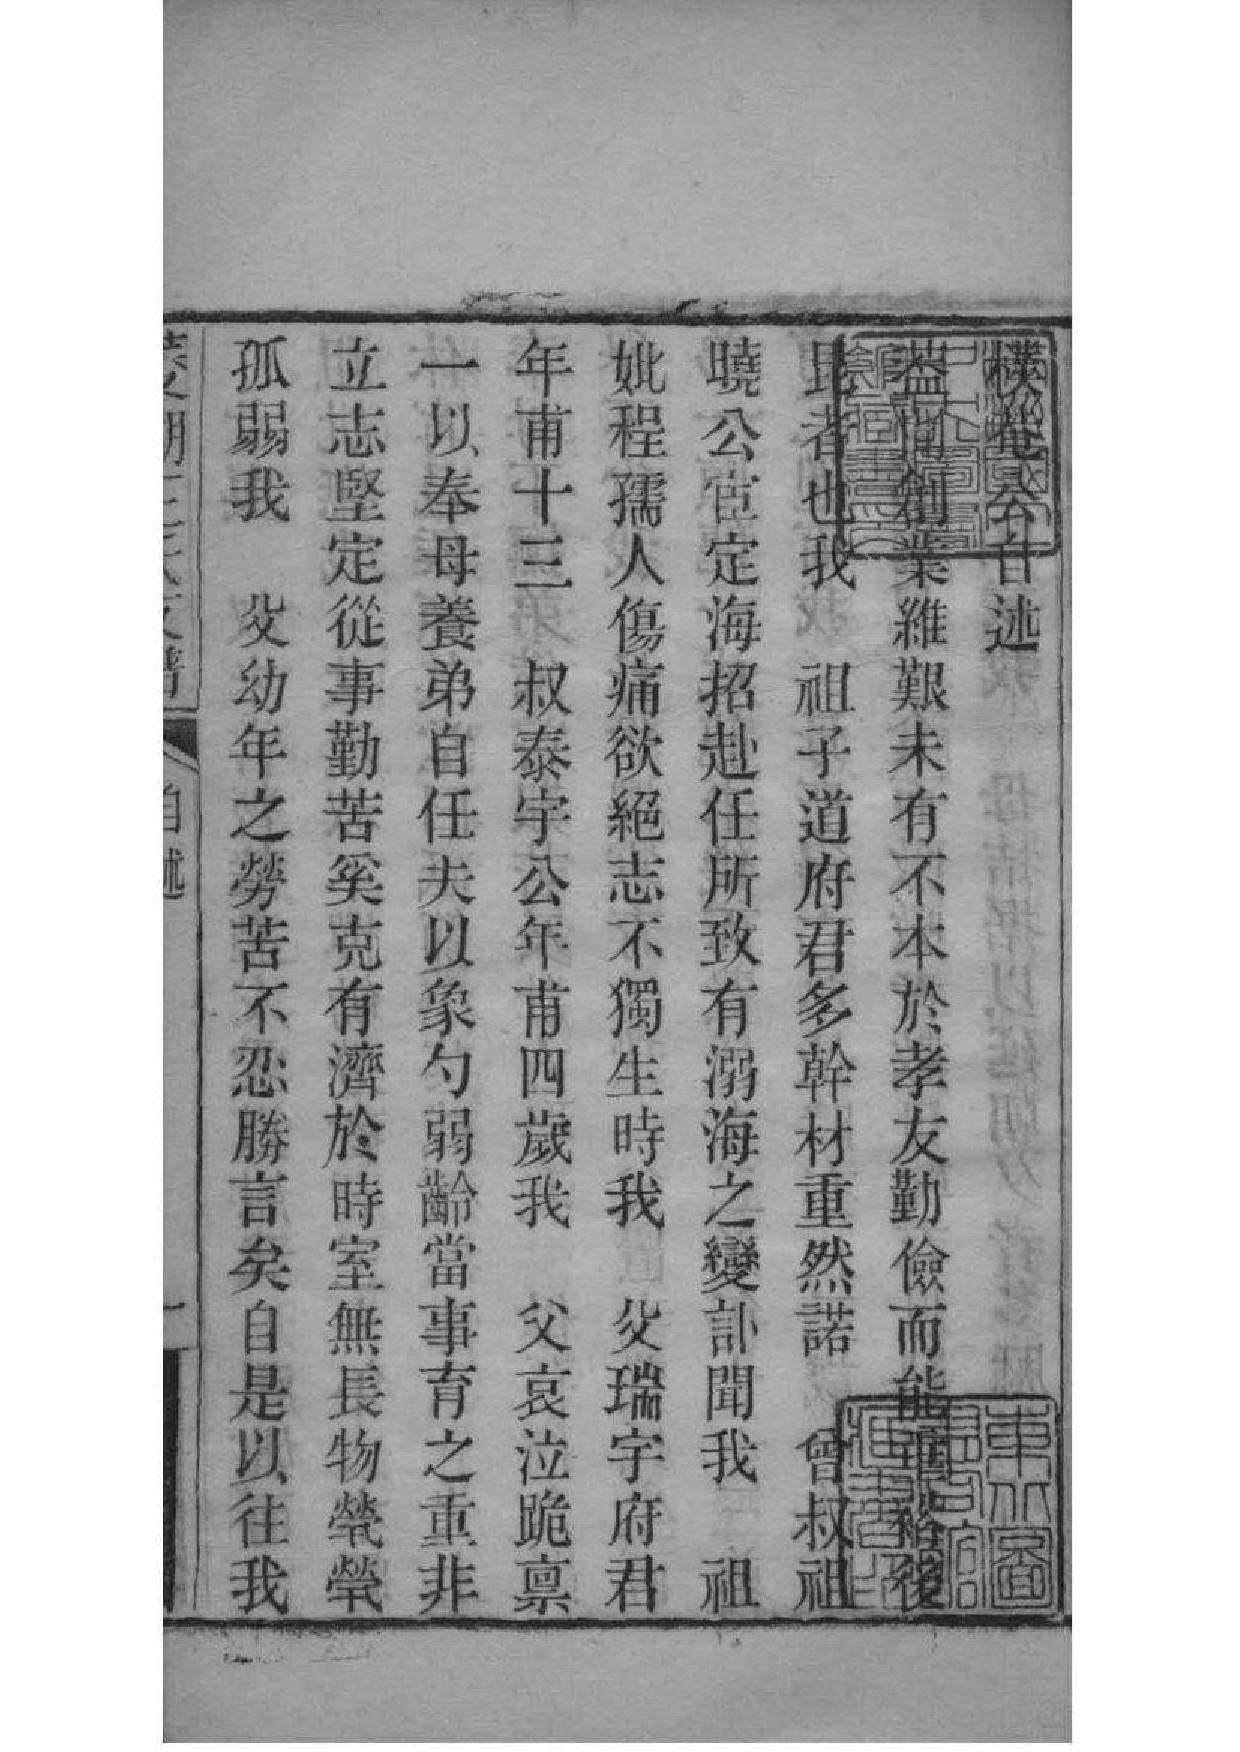 樸菴公自述
蓋聞創業維艱未有不本於孝友勤儉而能垂裕後
昆者也我　祖子道府君多幹材重然諾　曾叔祖
曉公宦定海招赴任所致有溺海之變訃聞我　祖
妣程孺人傷痛欲絕志不獨生時我　父瑞宇府君
年甫十三　叔泰宇公年甫四歲我　父哀泣跪禀
一以奉母養弟自任夫以象勺弱齡當事育之重非
立志堅定從事勤苦奚克有濟於時室無長物煢煢
孤弱我　父幼年之勞苦不忍勝言矣自是以往我
自述
一